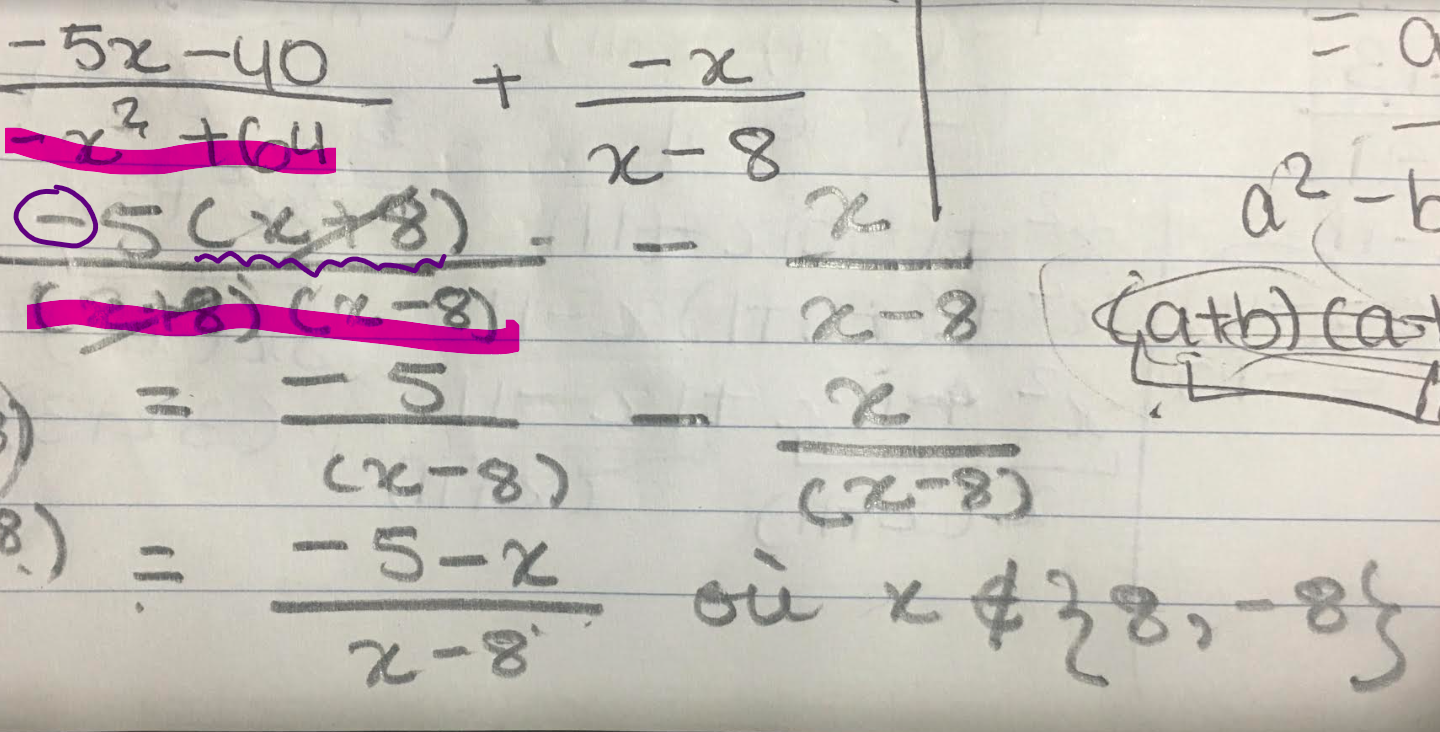 (-5x-40)/(-x²+64) + (-x)/(x-8)
(-5(x+8))/((x+8)(x-8)) - x/(x-8)
= (-5)/((x-8)) - x/((x-8))
= (-5-x)/(x-8) où x ∉ {8, -8}
= a
a² - b
(a+b)(a-